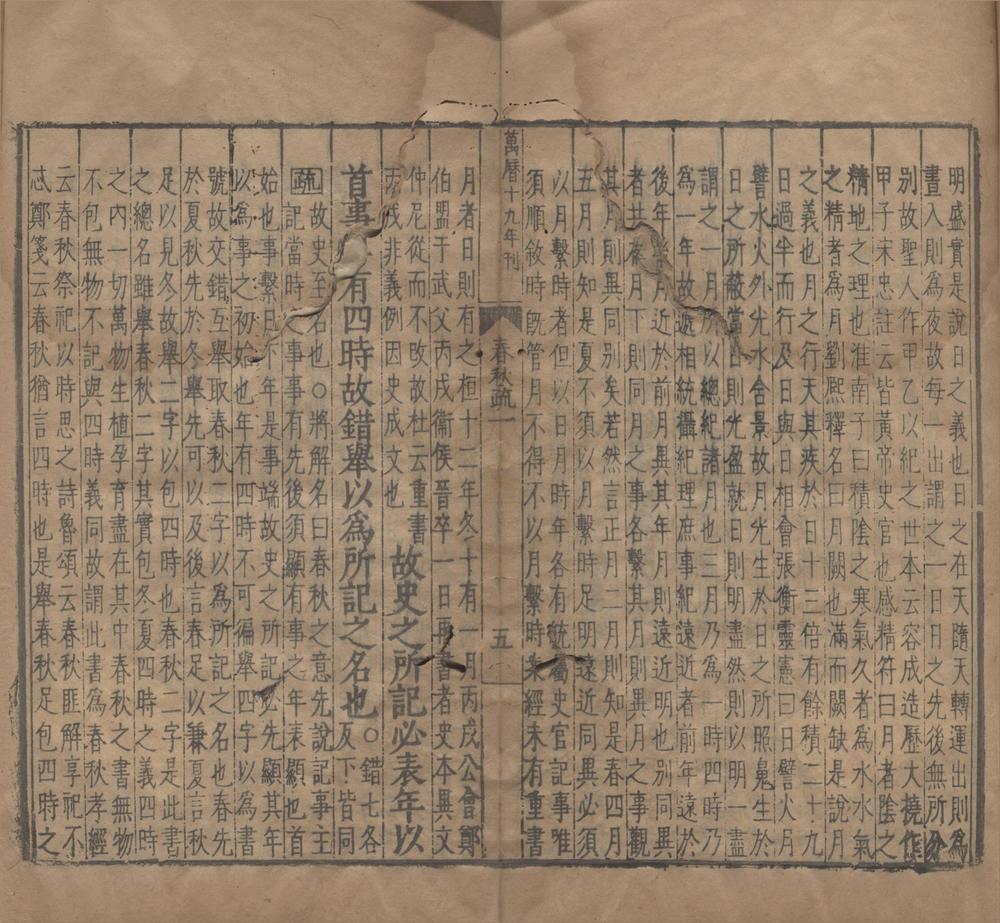 明盛實是說日之義也日之在天隨天轉運出則爲
晝入則爲夜故每一出謂之一日日之先後無所分
別故聖人作甲乙以紀之世本云容成造歷大橈作
甲子宋忠註云皆黃帝史官也感精符曰月者陰之
精地之理也淮南子曰積陰之寒氣久者爲水水氣
之精者爲月劉熙釋名曰月闕也滿而闕缺是說月
之義也月之行天其疾於日十三倍有餘積二十九
日過半而行及日日與日相會張衡靈憲曰日譬火月
譬水火外光水含景故月光生於日之所照鬼生於
日之所蔽當日則光盈就日則明盡然則以明一盡
謂之一月所以總紀諸月也三月乃爲一時四時乃
爲一年故遞相統攝紀理庶事紀遠近者前年遠於
後年後月近於前月異其年月則遠近明也別同異
者共在月下則同月之事各繫其月則異月之事觀
其月則異同別矣若然言正月二月則知是春四月
五月則知是夏不須以月繫時足明遠近同異必須
以月繫時者但以日月時年各有統屬史官記事唯
須順敘時旣管月不得不以月繫時未經未有重書
萬曆十九年刊
春秋疏一
五
月者日則有之桓十二年冬十有一月丙戌公會鄭
伯盟于武父丙戌衞侯晉卒一日再書者史本異文
仲尼從而不攺故杜云重書
丙戌非義例因史成文也
故史之所記必表年以
首事年有四時故錯舉以爲所記之名也
○錯七各
反下皆同
疏
故史至名也○將解名曰春秋之意先說記事主
記當時事事有先後須顯有事之年表顯也首
始也事繫日下年是事端故史之所記必先顯其年
以爲事之初始也年有四時不可徧舉四字以爲書
號故交錯互舉取春秋二字以爲所記之名也春先
於夏秋先於冬舉先可以及後言春足以兼夏言秋
足以見冬故舉二字以包四時也春秋二字是此書
之總名雖舉春秋二字其實包冬夏四時之義四時
之內一切萬物生植孕育盡在其中春秋之書無物
不包無物不記與四時義同故謂此書爲春秋孝經
云春秋祭祀以時思之詩魯頌云春秋匪解享祀不
忒鄭箋云春秋猶言四時也是舉春秋足包四時之